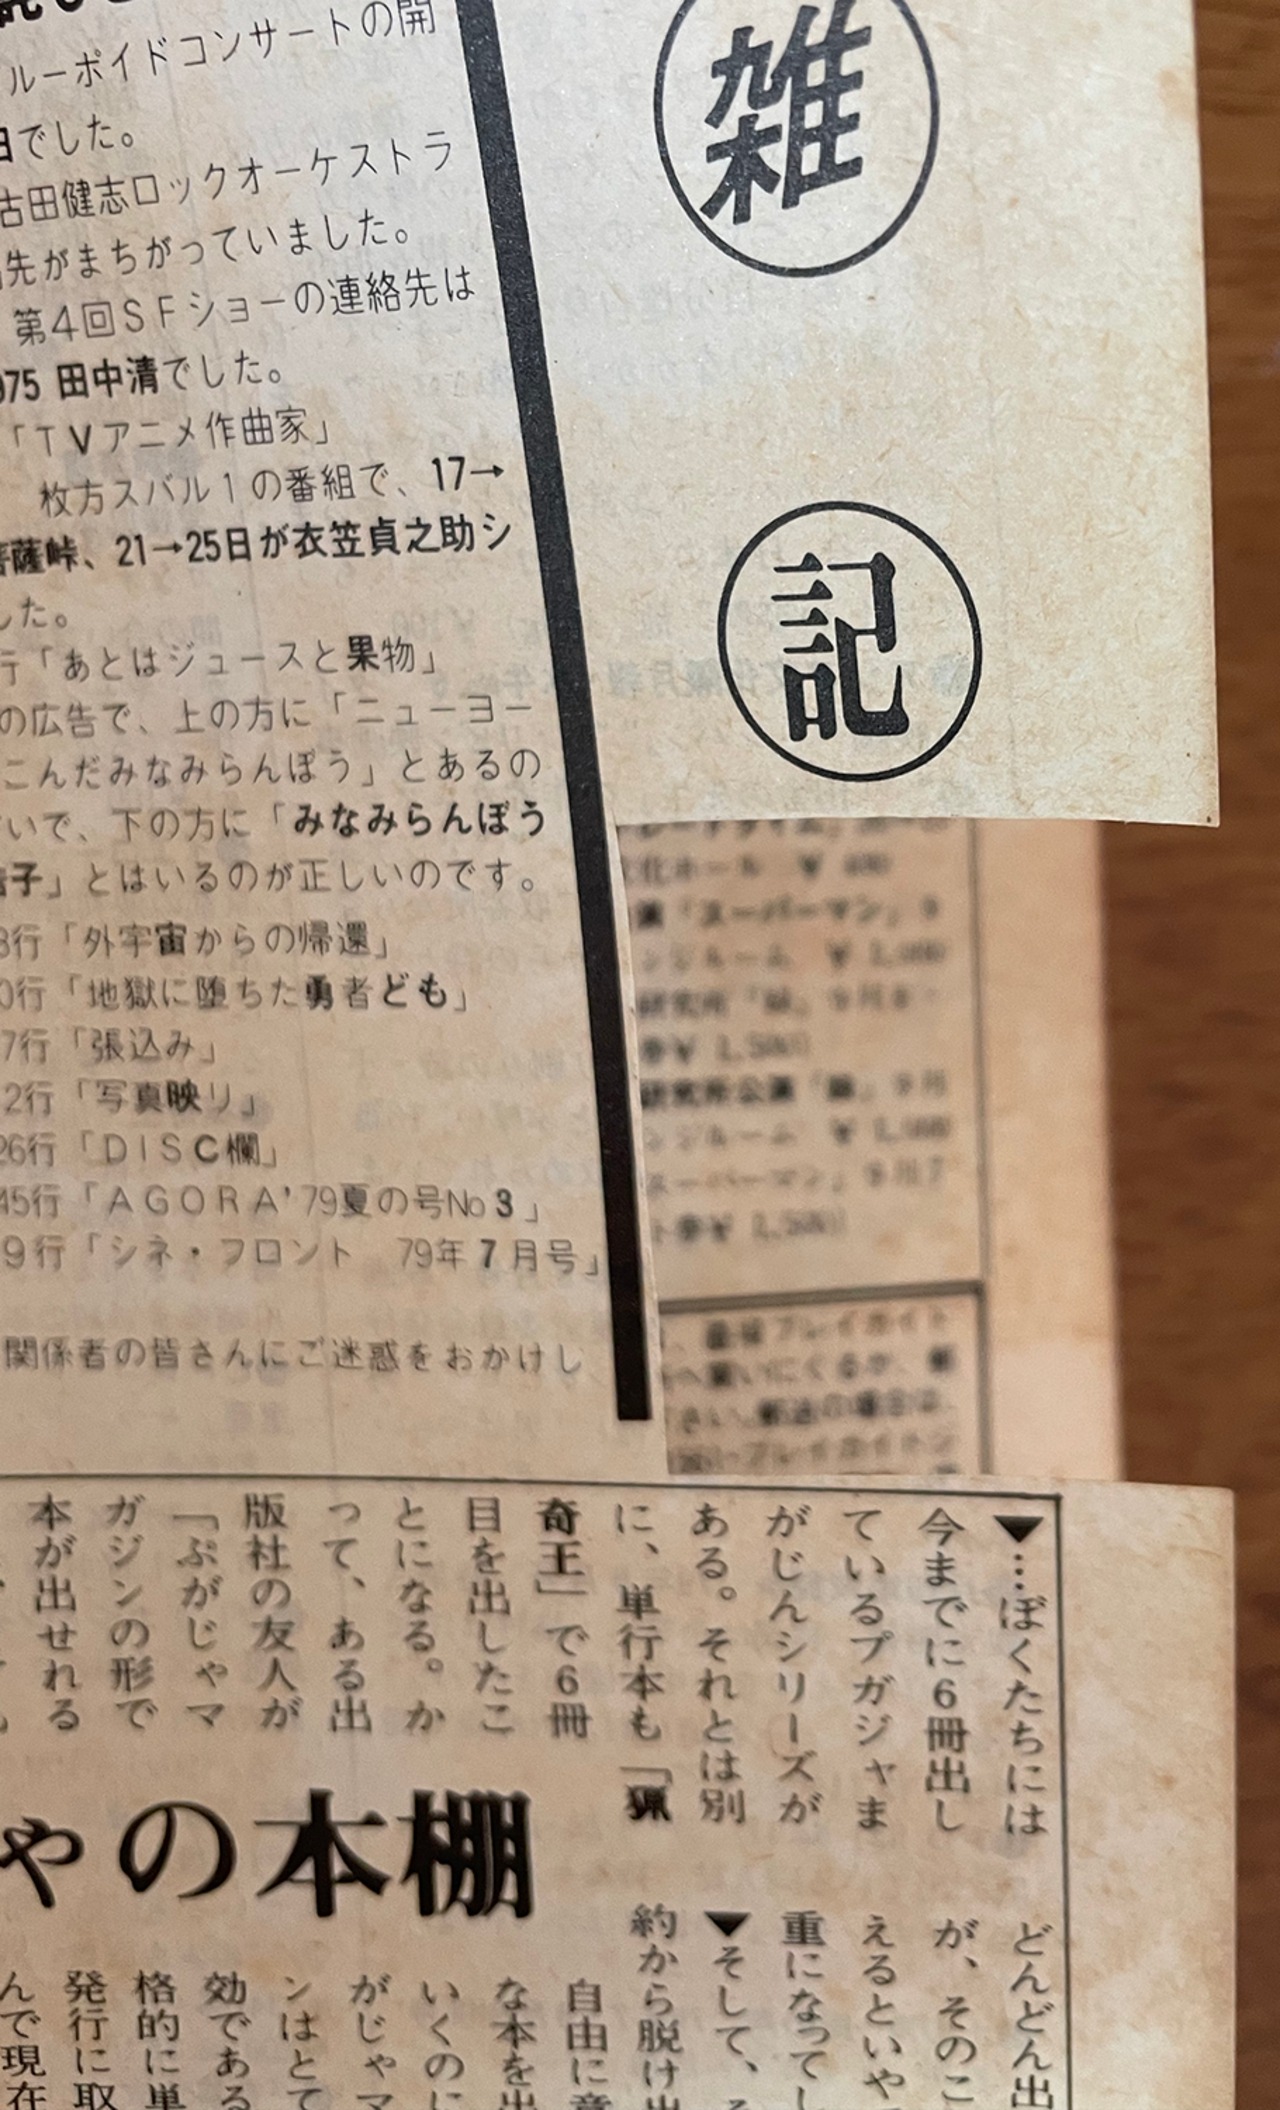 ルーポイドコンサートの開
日でした。
古田健志ロックオーケストラ
先がまちがっていました。
第4回SFショーの連絡先は
975 田中清でした。
「TVアニメ作曲家」
枚方スバル1の番組で、17→
菩薩峠、21→25日が衣笠貞之助シ
した。
行「あとはジュースと果物」
の広告で、上の方に「ニューヨー
こんだみなみらんぼう」とあるの
いで、下の方に「みなみらんぼう
子」とはいるのが正しいのです。
8行「外宇宙からの帰還」
0行「地獄に堕ちた勇者ども」
7行「張込み」
2行「写真映り」
26行「DISC欄」
45行「AGORA'79夏の号No3」
9行「シネ・フロント 79年7月号」
関係者の皆さんにご迷惑をおかけし
雑
記
化ホール ¥
「スーパーマン」9
ンジルーム ¥
研究所「
¥ 1,500
研究所公演「
ンジルーム ¥
スーパーマン」9月7
ト券¥ 1,500
プレイガイド
へ買いにくるか、郵
さい。郵送の場合は、
プレイガイド
▼…ぼくたちには
今までに6冊出し
ているプガジャま
がじんシリーズが
ある。それとは別
に、単行本も「猟
奇王」で6冊
目を出したこ
とになる。か
って、ある出
版社の友人が
「ぷがじゃマ
ガジンの形で
本が出せれる
ゃの本棚
どんどん出
が、そのこ
えるといや
重になってし
▼そして、そ
約から脱け出
自由に意
な本を出
いくのに
がじゃマ
ンはとて
効である
格的に単
発行に取
んで現在